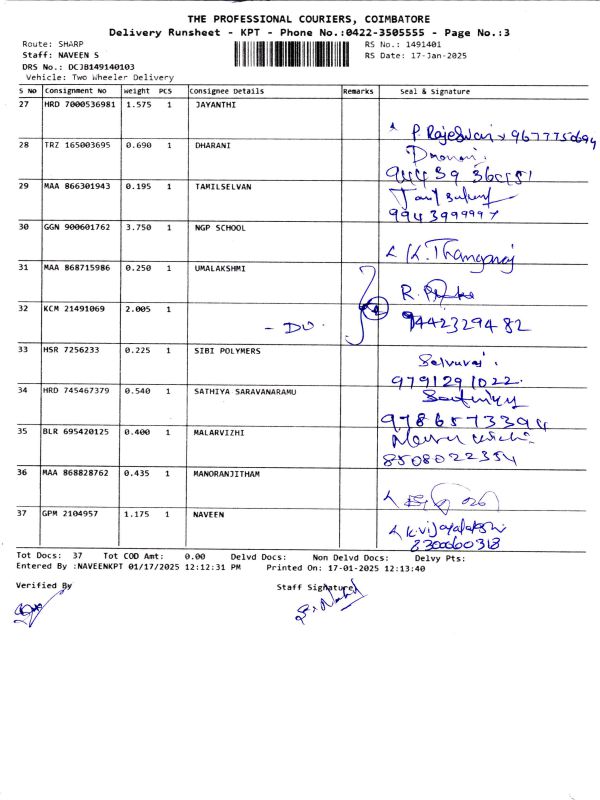 THE PROFESSIONAL COURIERS, COIMBATORE
Delivery Runsheet - KPT - Phone No.:0422-3505555 - Page No.:3
Route: SHARP
RS No.: 1491401
Staff: NAVEEN S
RS Date: 17-Jan-2025
DRS No.: DCJB149140103
Vehicle: Two Wheeler Delivery
S No Consignment No Weight PCS Consignee Details Remarks Seal & Signature
27 HRD 7000536981 1.575 1 JAYANTHI
P. Rajeswari
28 TRZ 165003695 0.690 1 DHARANI
29 MAA 866301943 0.195 1 TAMILSELVAN
9943999997
30 GGN 900601762 3.750 1 NGP SCHOOL
K. Thangaraj
31 MAA 868715986 0.250 1 UMALAKSHMI
R.
32 KCM 21491069 2.005 1
- DO - 9442329482
33 HSR 7256233 0.225 1 SIBI POLYMERS
Selvaraj.
9791291022.
34 HRD 745467379 0.540 1 SATHIYA SARAVANARAMU
9786573394
35 BLR 695420125 0.400 1 MALARVIZHI
8508022354
36 MAA 868828762 0.435 1 MANORANJITHAM
37 GPM 2104957 1.175 1 NAVEEN
K. Vijayalakshmi
8300060318
Tot Docs: 37 Tot COD Amt: 0.00 Delvd Docs: Non Delvd Docs: Delvy Pts:
Entered By :NAVEENKPT 01/17/2025 12:12:31 PM Printed On: 17-01-2025 12:13:40
Verified By
Staff Signature